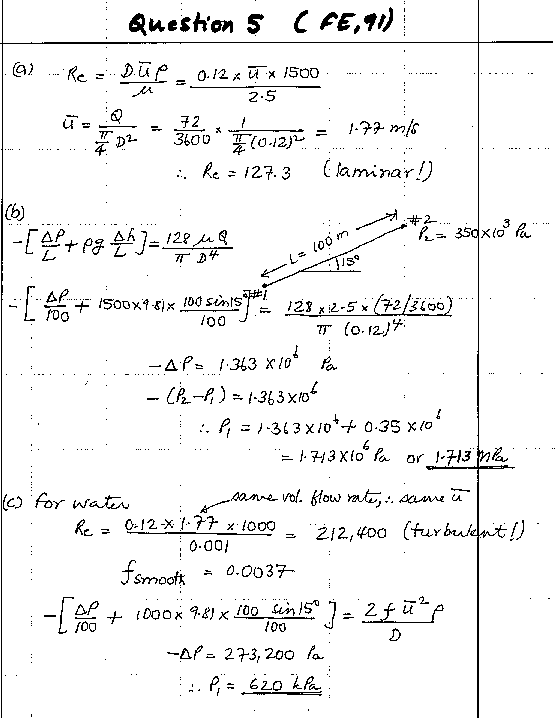 Question 5 (FE, 91)
(a) Re = D ū ρ / μ = 0.12 × ū × 1500 / 2.5
ū = Q / (π/4 D²) = 72/3600 × 1 / (π/4 (0.12)²) = 1.77 m/s
∴ Re = 127.3 (laminar!)
(b)
-[ΔP/L + ρg Δh/L] = 128 μ Q / π D⁴
L = 100 m
15°
#1
#2
P₂ = 350×10³ Pa
-[ΔP/100 + 1500×9.81× 100 sin15°/100] = 128 × 2.5 × (72/3600) / π (0.12)⁴
-ΔP = 1.363 × 10⁶ Pa
-(P₂-P₁) = 1.363×10⁶
∴ P₁ = 1.363×10⁶ + 0.35 ×10⁶
= 1.713×10⁶ Pa or 1.713 MPa
(c) for water
same vol. flow rate, ∴ same ū
Re = 0.12 × 1.77 × 1000 / 0.001 = 212,400 (turbulent!)
f smooth = 0.0037
-[ΔP/100 + 1000× 9.81 × 100 sin15°/100] = 2 f ū² ρ / D
-ΔP = 273,200 Pa
∴ P₁ = 620 kPa